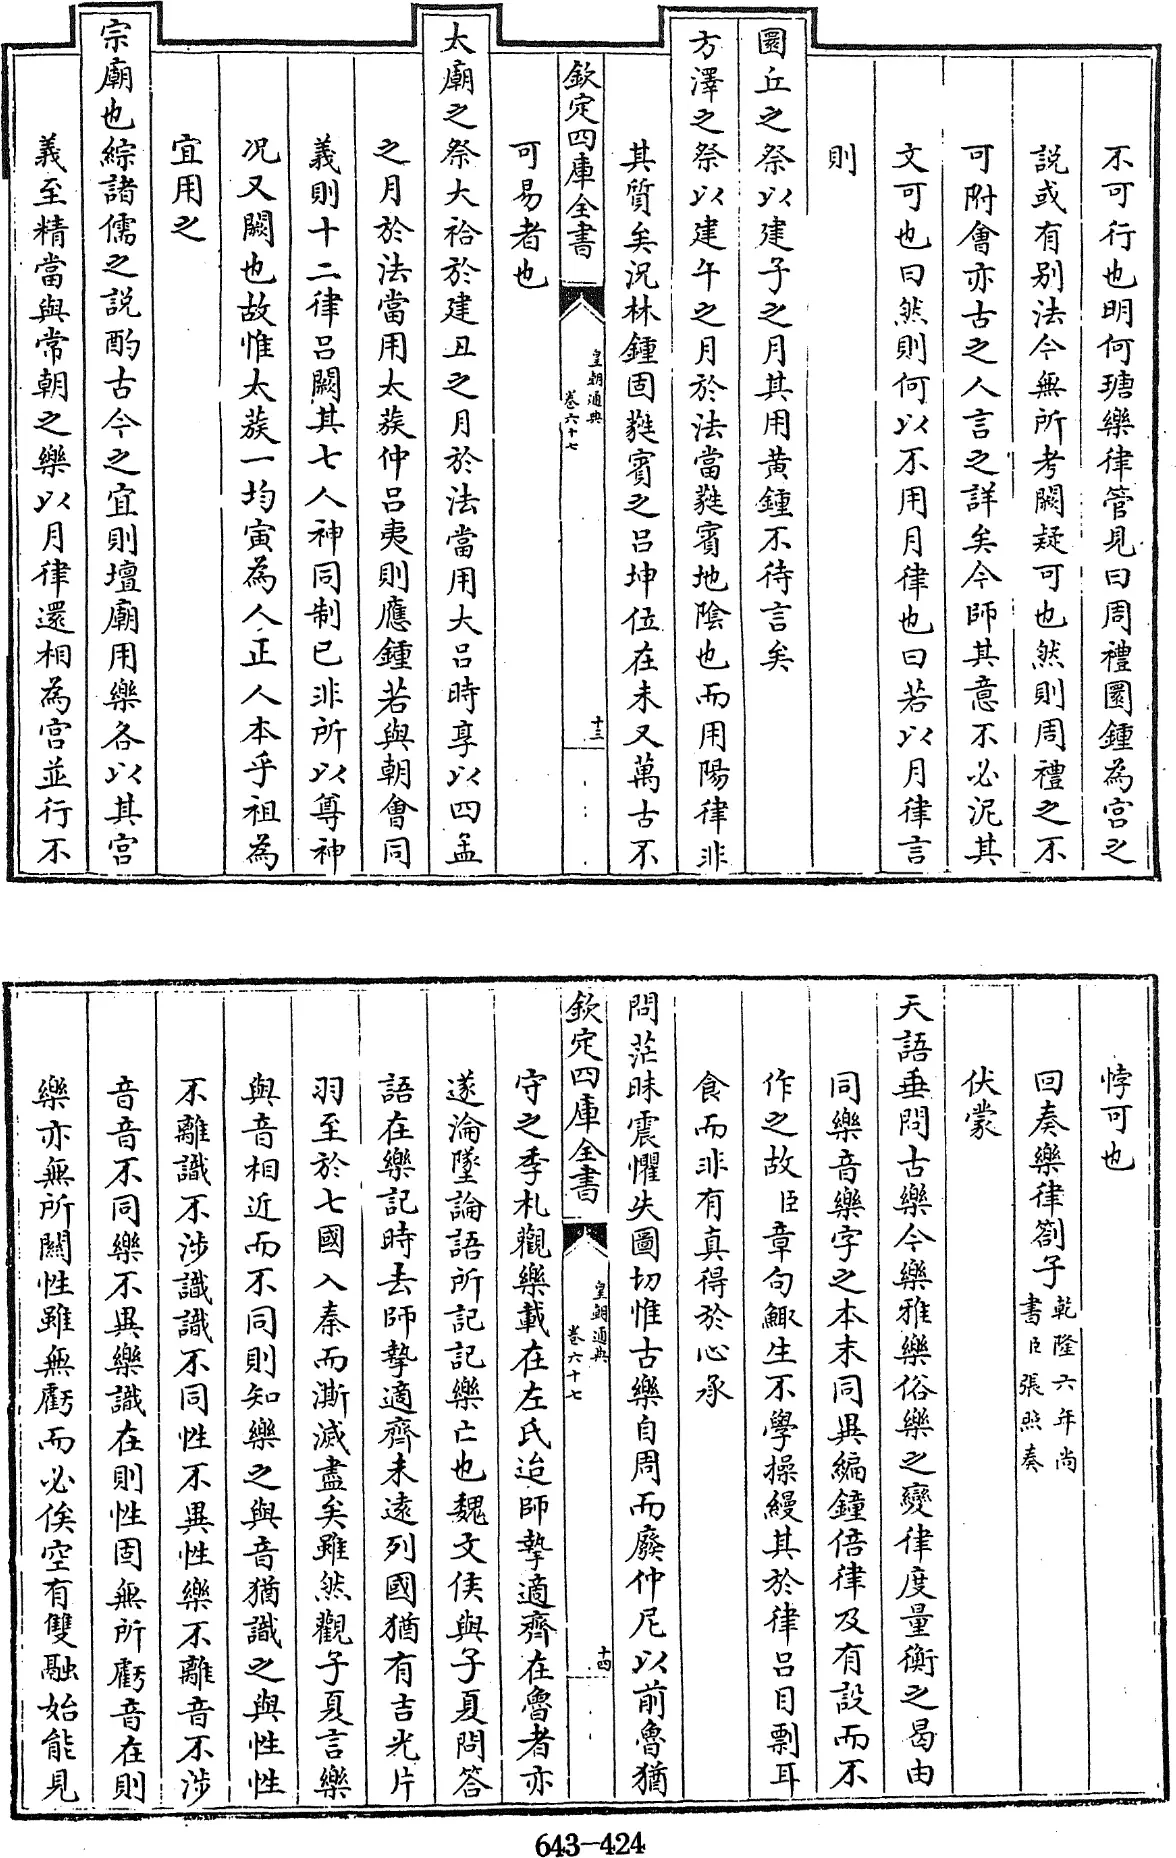 不可行也明何瑭樂律管見曰周禮圜鍾為宫之
説或有别法今無所考闕疑可也然則周禮之不
可附會亦古之人言之詳矣今師其意不必泥其
文可也曰然則何以不用月律也曰若以月律言
則
圜丘之祭以建子之月其用黄鍾不待言矣
方澤之祭以建午之月於法當蕤賓地陰也而用陽律非
其質矣况林鍾固蕤賓之吕坤位在未又萬古不
欽定四庫全書
皇朝通典
卷六十七
十三
可易者也
太廟之祭大祫於建丑之月於法當用大吕時享以四孟
之月於法當用太蔟仲吕夷則應鍾若與朝會同
義則十二律吕闕其七人神同制已非所以尊神
况又闕也故惟太蔟一均寅為人正人本乎祖為
宜用之
宗廟也綜諸儒之説酌古今之宜則壇廟用樂各以其宫
義至精當與常朝之樂以月律還相為宫並行不
悖可也
回奏樂律劄子
乾隆六年尚
書臣張照奏
伏蒙
天語垂問古樂今樂雅樂俗樂之變律度量衡之曷由
同樂音樂字之本末同異編鐘倍律及有設而不
作之故臣章句鯫生不學操縵其於律吕目剽耳
食而非有真得於心承
問茫昧震懼失圖切惟古樂自周而廢仲尼以前魯猶
欽定四庫全書
皇朝通典
卷六十七
十四
守之季札觀樂載在左氏迨師摯適齊在魯者亦
遂淪墜論語所記記樂亡也魏文侯與子夏問答
語在樂記時去師摯適齊未遠列國猶有吉光片
羽至於七國入秦而澌滅盡矣雖然觀子夏言樂
與音相近而不同則知樂之與音猶識之與性性
不離識不涉識識不同性不異性樂不離音不涉
音音不同樂不異樂識在則性固無所虧音在則
樂亦無所闕性雖無虧而必俟空有雙融始能見
643-424